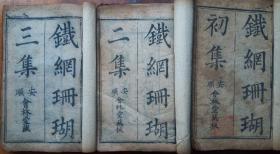 鐵網珊瑚
初集
安順
會林堂藏板
鐵網珊瑚
二集
安順
會林堂藏板
鐵網珊瑚
三集
安順
會林堂藏